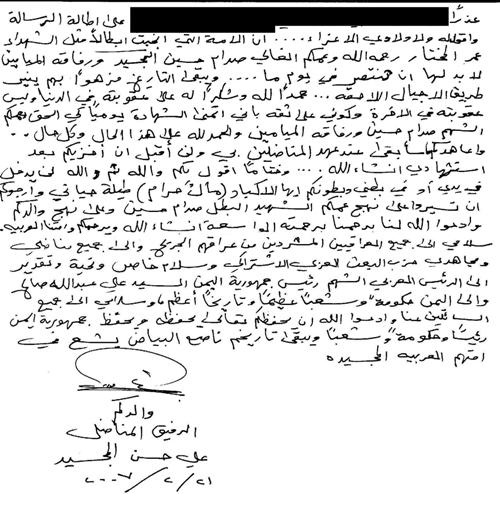 عذراً على اطالة الرسالة
واقول له ولاولادي الاعزاء.... ان الامة التي انجبت ابطالاً مثل الشهداء
عمر المختار رحمه الله وعمكم الغالي صدام حسين المجيد ورفاقه الميامين
لا بد لها ان تنتصر في يوم ما .... ويبقى التاريخ مزهواً بهم ينير
طريق الاجيال اللاحقة ... حمداً لله وشكراً له على عقوبته في الدنيا وليس
عقوبته في الآخرة وكوني على ثقة باني اتمنى الشهادة يومياً كي التحق بعمكم
الشهم صدام حسين ورفاقه الميامين والحمد لله على هذا الحال وكل حال..
واعاهدكم سأبقى عند عهد المناضلين بي ولن أقبل ان أخزيكم بعد
استشهادي انشاء الله .... وختاماً اقول لكم والله ثم والله لن يدخل
في يدي أو في بطني وبطونكم ايها الاكباد (مالٌ حرام) طيلة حياتي وارجوكم
ان تسيروا على نهج عمكم الشهيد البطل صدام حسين وعلى نهج والدكم
وادعوا الله لنا يرحمنا برحمته الواسعة انشاء الله ويرحمكم وامتنا العربية.
سلامي الى جميع العراقيين المشردين من عراقهم الجريح والى جميع مناضلي
ومجاهدي حزب البعث العربي الاشتراكي وسلام خاص وتحية وتقدير
الى الرئيس العربي الشهم رئيس جمهورية اليمن السيد علي عبدالله صالح
والى اليمن حكومةً وشعباً عظيماً وتاريخاً أعظم، وسلامي الى جميع
السائلين عنا وادعوا الله ان يحفظكم تعالى يحفظه ويحفظ جمهورية اليمن
رئيساً وحكومةً وشعباً ويبقى تاريخهم ناصع البياض يشع في
امتهم العربية المجيده
والدكم
الرفيق المناضل
علي حسن المجيد
٢٠٠٧/٢/٢١